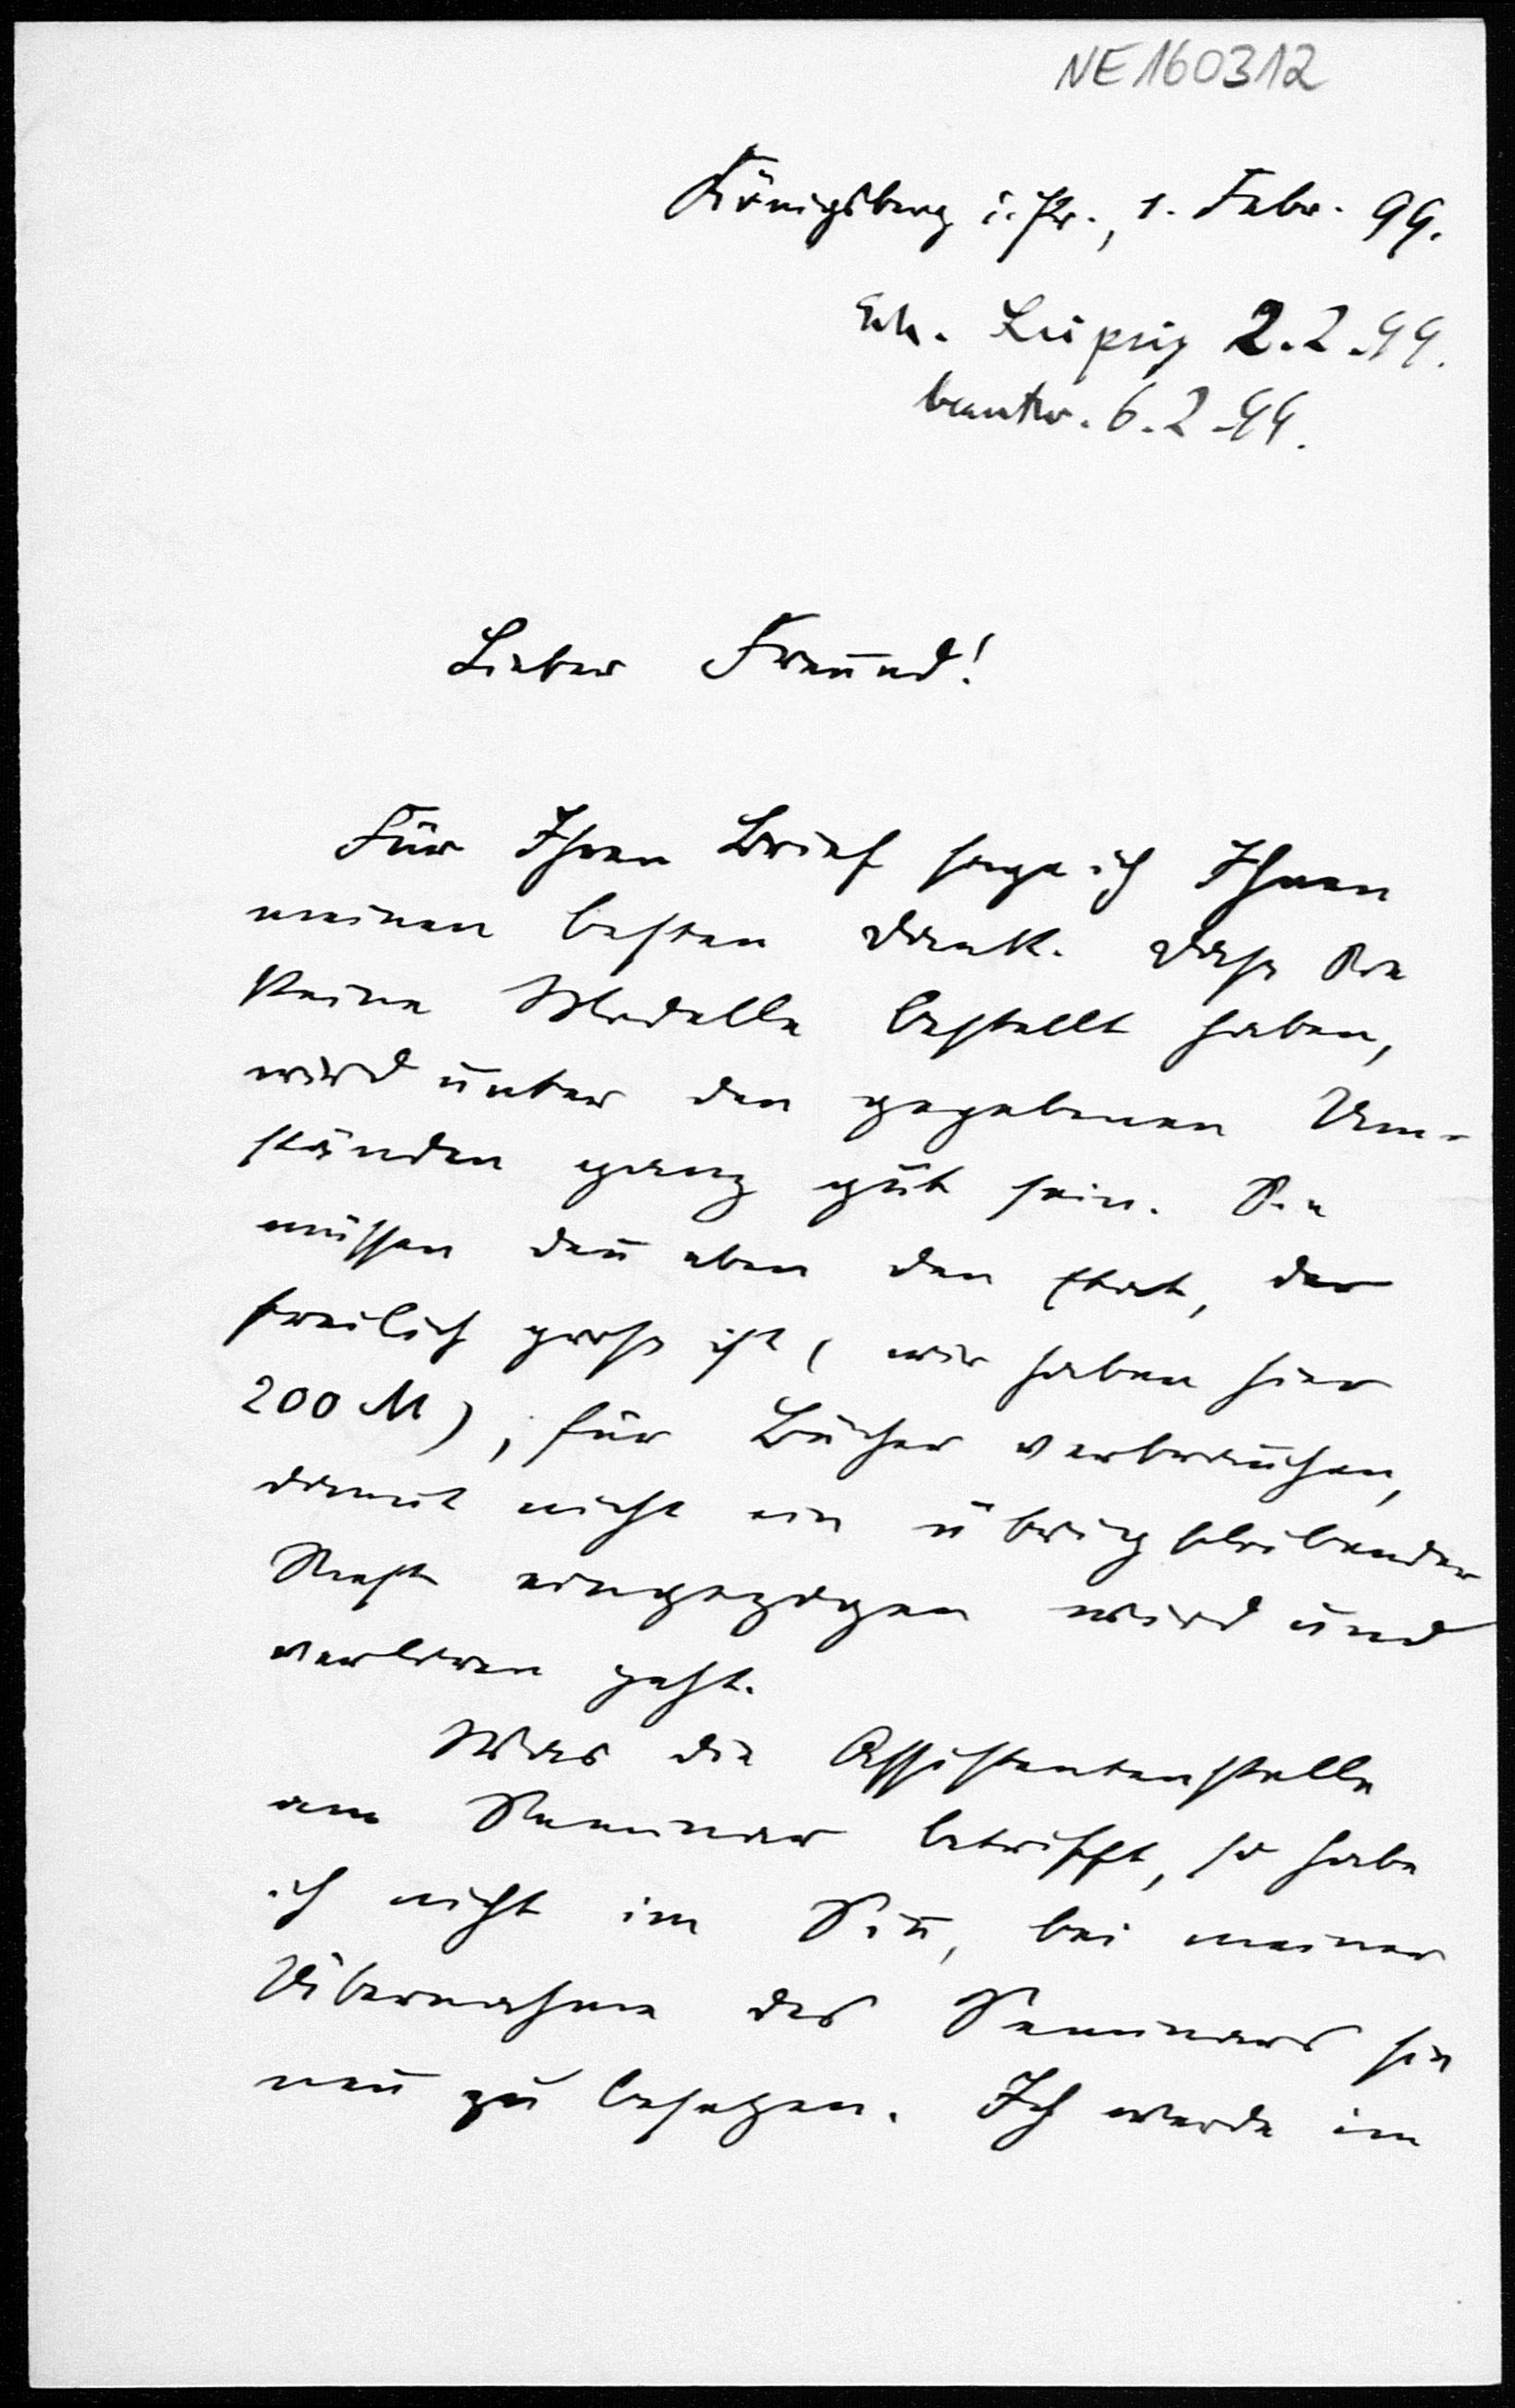 NE160312
Königsberg i. Pr., 1. Febr. 99.
Erh. Leipzig 2.2.99.
beantw. 6.2.99.
Lieber Freund!
Für Ihren Brief sage ich Ihnen
meinen besten Dank. Dass Sie
keine Modelle bestellt haben,
wird unter den gegebenen Um-
ständen ganz gut sein. Sie
müssen deñ eben den Etat, der
freilich gross ist (wir haben hier
200 M), für Bücher verbrauchen,
damit nicht ein übrig bleibender
Rest eingezogen wird und
verloren geht.
Was die Assistentenstelle
am Seminar betrifft, so habe
ich nicht im Siñ, bei meiner
Übernahme des Seminars sie
neu zu besetzen. Ich werde im